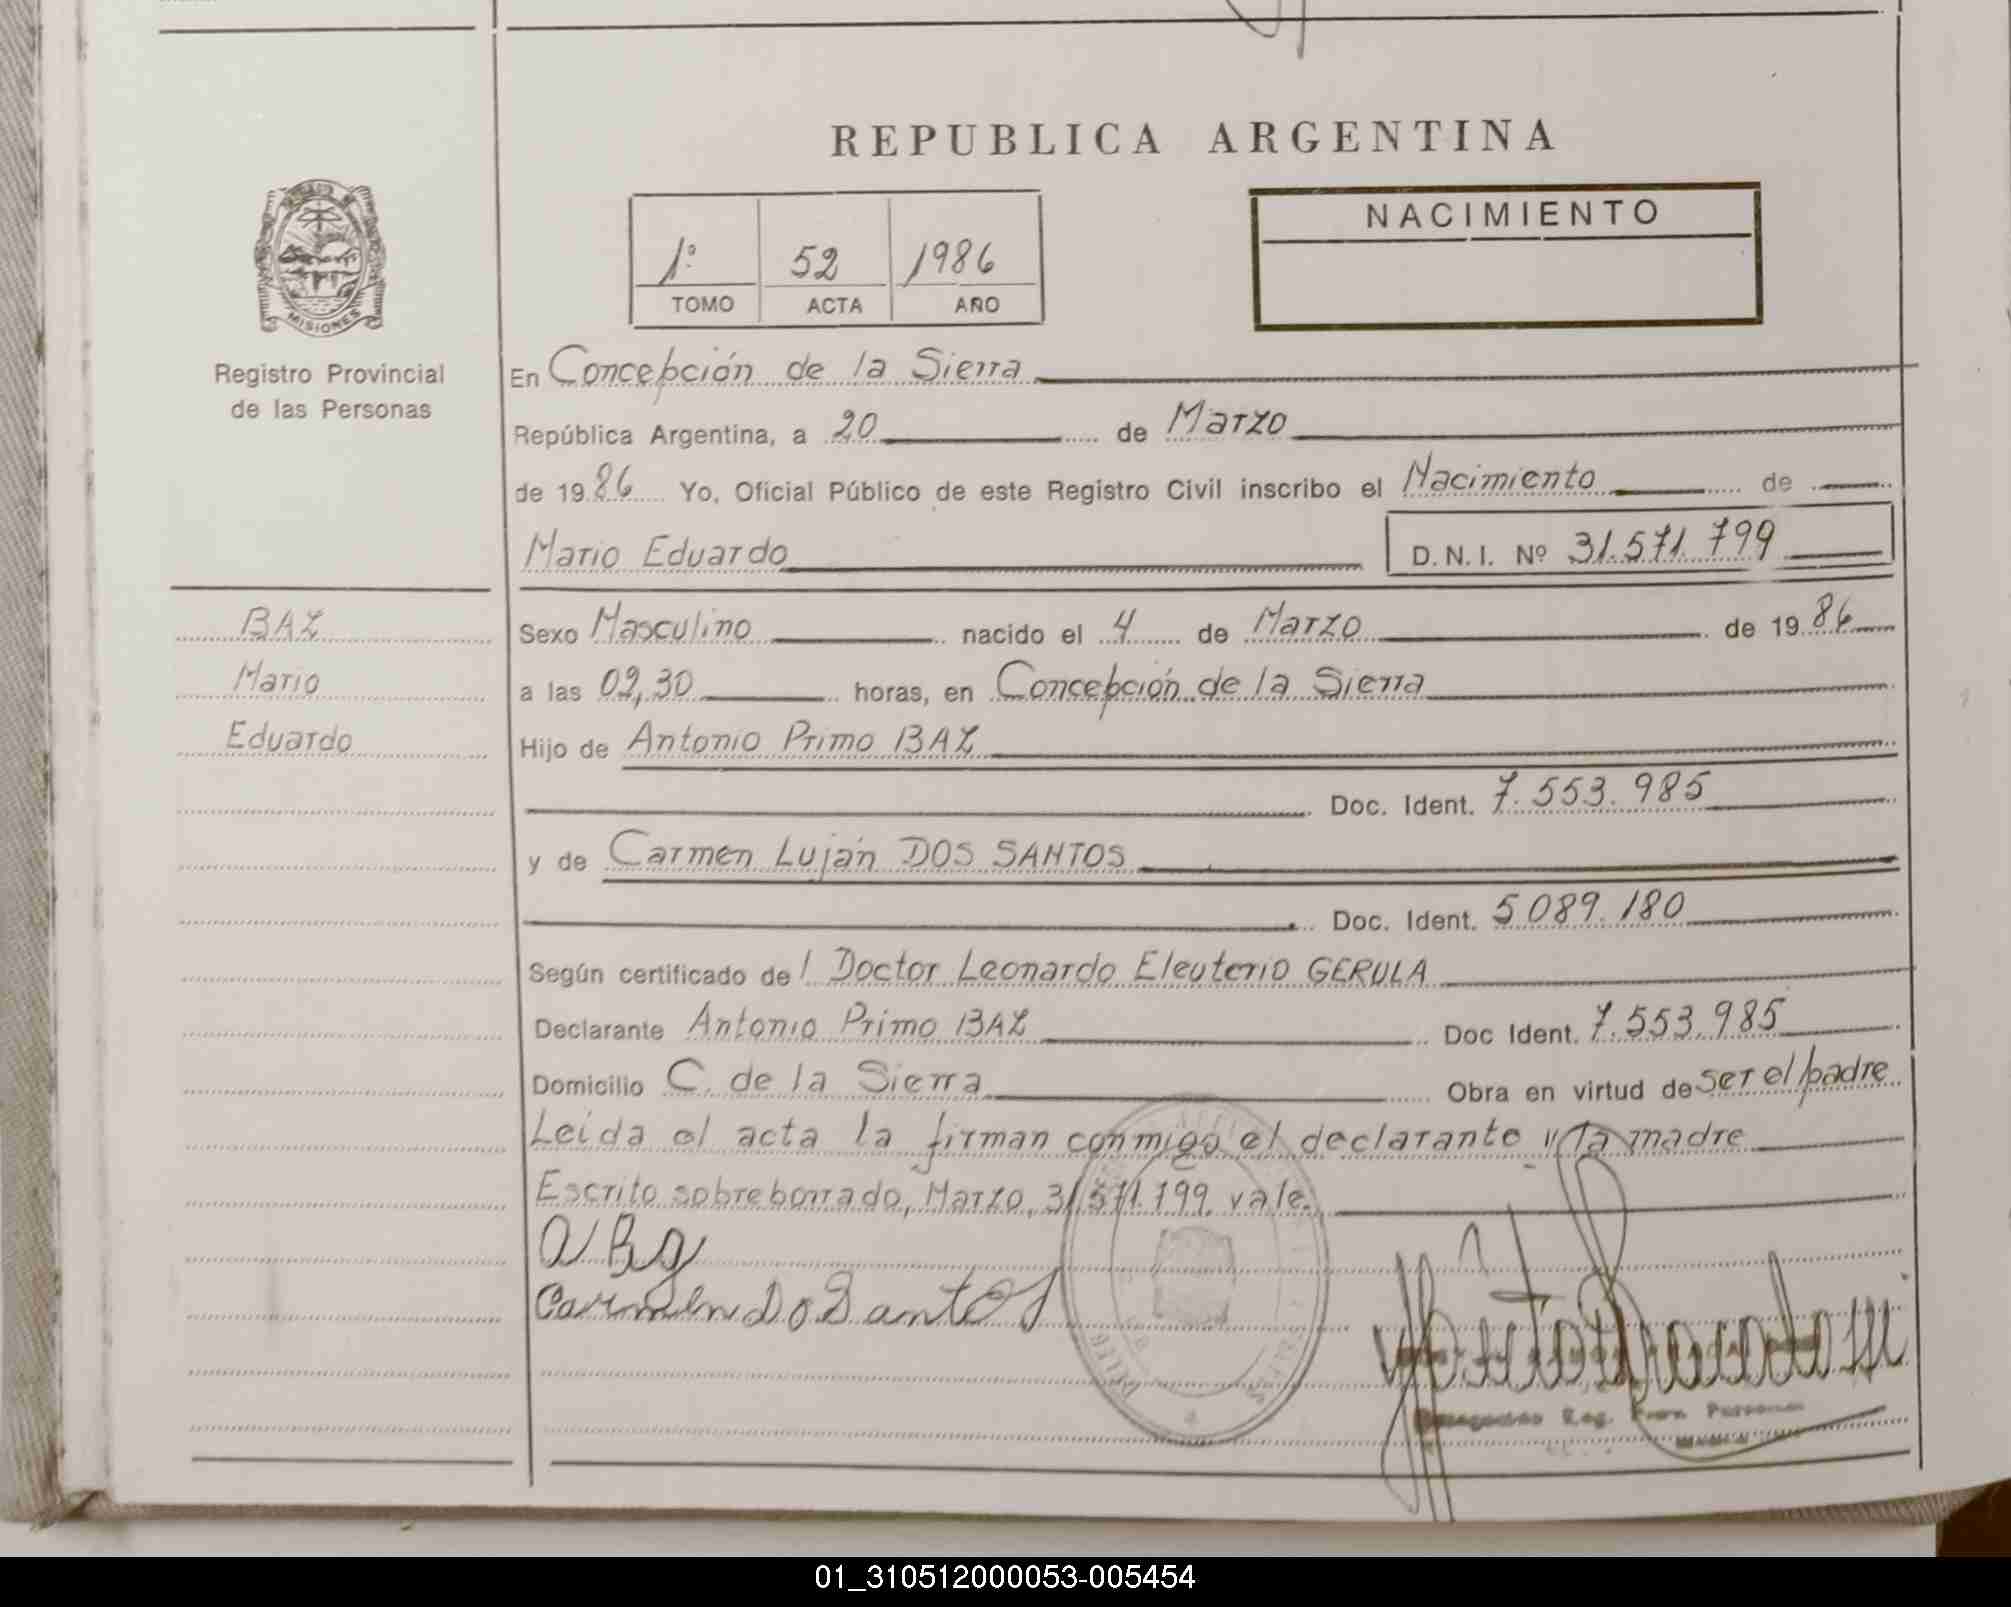 REPUBLICA ARGENTINA
MISIONES
Registro Provincial
de las Personas
1º 52 1986
TOMO ACTA AÑO
NACIMIENTO
En Concepción de la Sierra
República Argentina, a 20 de Marzo
de 1986 Yo, Oficial Público de este Registro Civil inscribo el Nacimiento de
Mario Eduardo D.N.I. Nº 31.571.799
BAZ
Mario
Eduardo
Sexo Masculino nacido el 4 de Marzo de 1986
a las 09,30 horas, en Concepción de la Sierra
Hijo de Antonio Primo BAZ
Doc. Ident. 7.553.985
y de Carmen Luján DOS SANTOS
Doc. Ident. 5.089.180
Según certificado del Doctor Leonardo Eleuterio GERULA
Declarante Antonio Primo BAZ Doc Ident. 7.553.985
Domicilio C. de la Sierra Obra en virtud de ser el padre
Leída el acta la firman conmigo el declarante y la madre
Escrito sobreborrado, Marzo, 31.571.799. vale.
Carmen Do Santos
Reg. Prov. Personas
01_310512000053-005454